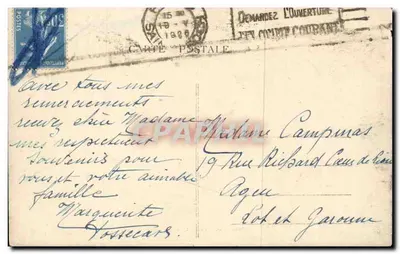 DEMANDEZ L'OUVERTURE
D'UN COMPTE COURANT
1926
CARTE POSTALE
POSTES
avec tous mes
remerciements
recevez chère Madame
mes respectueux
souvenirs pour
vous et votre aimable
famille
Marguerite
Madame Campinas
19 Rue Richard Coeur de Lion
Agen
Lot et Garonne
CPARAMA